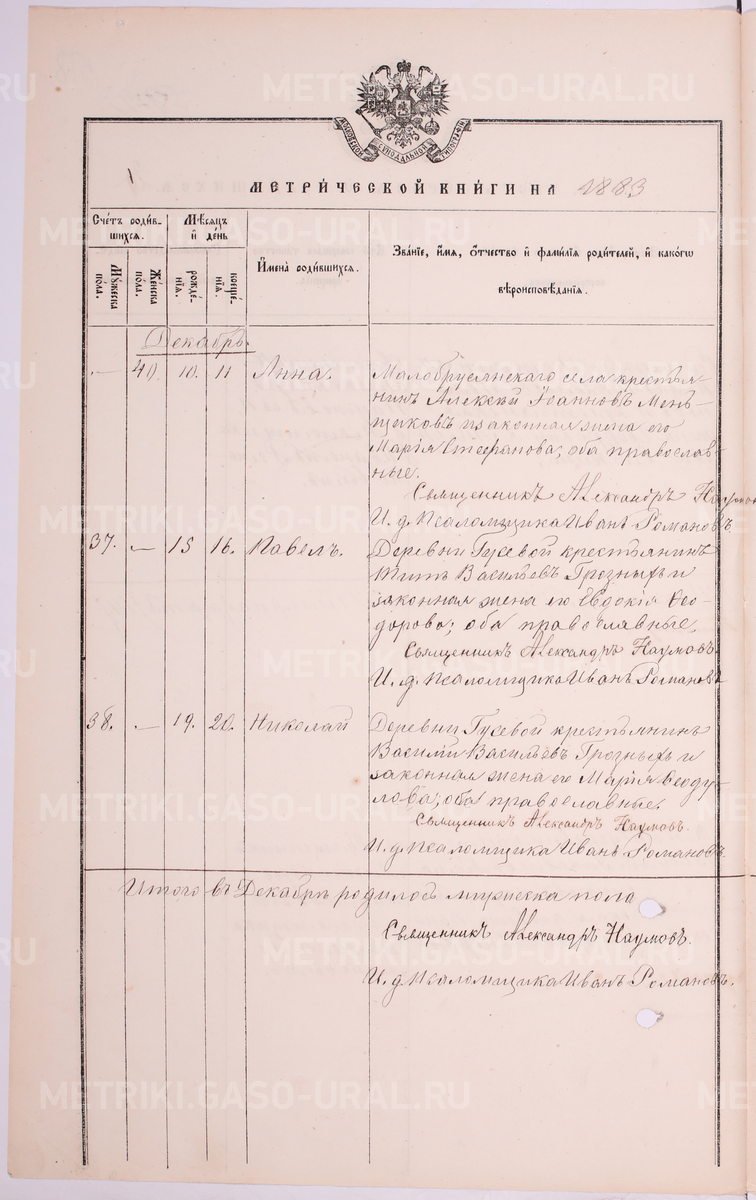 МОСКОВСКОЙ СИНОДАЛЬНОЙ ТИПОГРАФІИ
МЕТРИ́ЧЕСКОЙ КНИ́ГИ НА 1883
Сче́тъ роди́вшихсѧ.
Мѣ́сѧцъ и҆ де́нь
И҆мена̀ роди́вшихсѧ.
Зва́нїе, и҆́мѧ, ѻ҆́тчество и҆ фами́лїѧ роди́телей, и҆ како́гѡ
вѣроисповѣ́данїѧ.
Мꙋ́жеска по́ла.
Же́нска по́ла.
рожде́нїѧ.
креще́нїѧ.
Декабрь.
— 40. 10. 11 Анна. Малобрусянскаго села крестья-
нинъ Алексѣй Іоанновъ Мень-
щиковъ и законная жена его
Марія Стефанова; оба православ-
ные.
Священникъ Александръ Наумовъ
И. д. Псаломщика Иванъ Романовъ.
37. — 15 16. Павелъ. Деревни Гусевой крестьянинъ
Титъ Васильевъ Грозныхъ и
законная жена его Евдокія Ѳео-
дорова; оба православные.
Священникъ Александръ Наумовъ.
И. д. Псаломщика Иванъ Романовъ
38. — 19. 20. Николай Деревни Гусевой крестьянинъ
Василій Васильевъ Грозныхъ и
законная жена его Марія Ѳеоду-
лова; оба православные.
Священникъ Александръ Наумовъ.
И. д. Псаломщика Иванъ Романовъ.
Итого въ Декабрѣ родилось мужеска пола
Священникъ Александръ Наумовъ.
И. д. Псаломщика Иванъ Романовъ.
METRIKI.GASO-URAL.RU